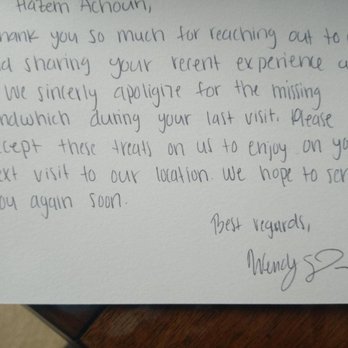 Hazem Achour,
hank you so much for reaching out to
nd sharing your recent experience w
We sincerly apoligize for the missing
ndwhich during your last visit. Please
ccept these treats on us to enjoy on yo
ext visit to our location. We hope to ser
ou again soon.
Best regards,
Wendy